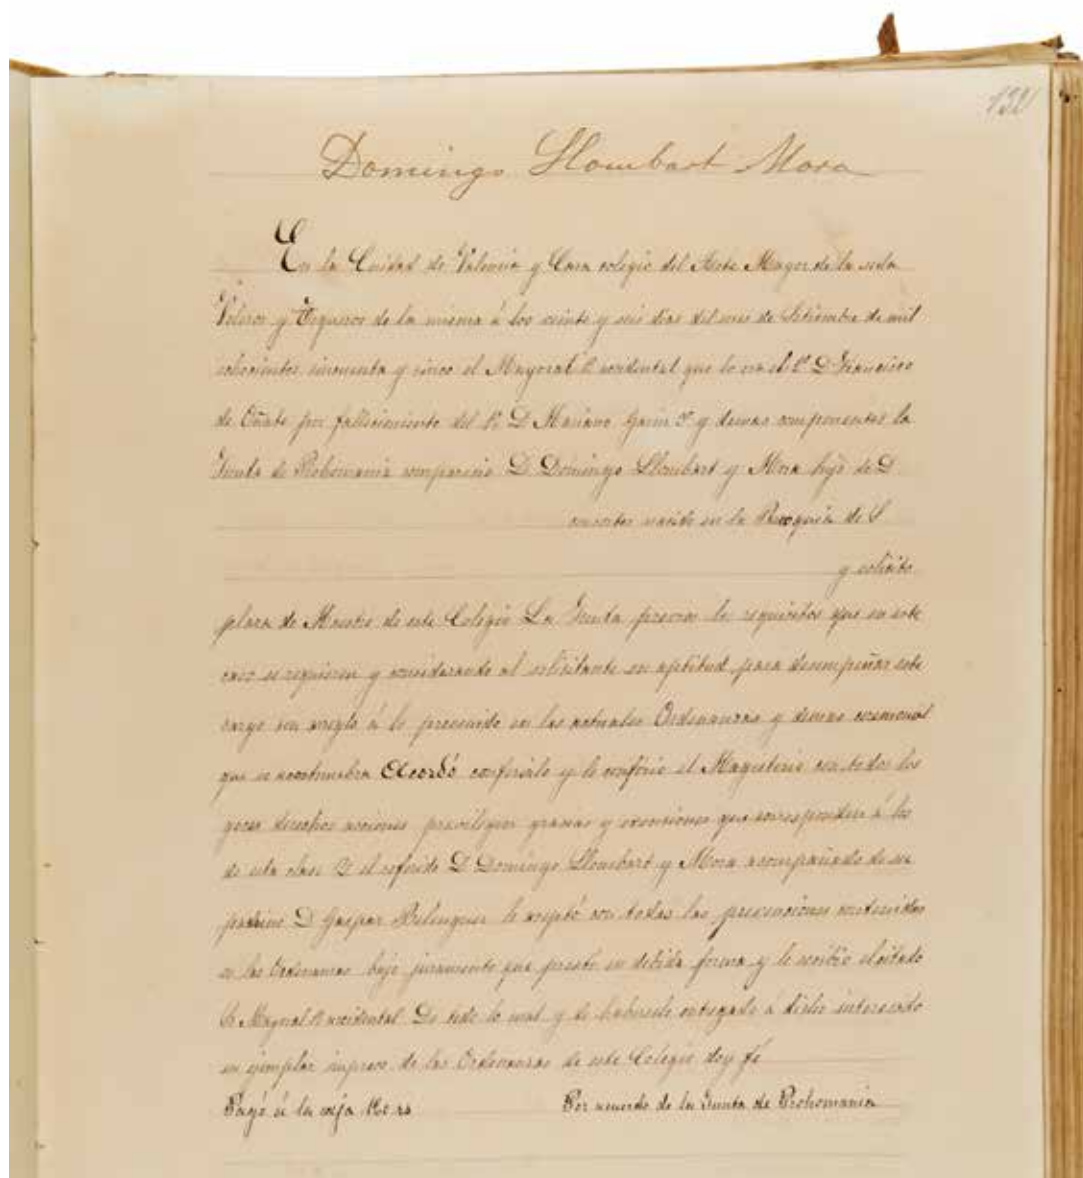 132
Domingo Llombart Mora
En la Ciudad de Valencia y Casa colegio del Arte Mayor de la seda
Veleros y Torqueros de la misma á los veinte y seis dias del mes de Setiembre de mil
ochocientos cincuenta y cinco el Mayoral 1º accidental que lo era el 2º D Francisco
de Oñate por fallecimiento del 1º D Mariano Garin 2º y demas componentes la
Junta de Prohomania comparecio D Domingo Llombart y Mora hijo de D
consortes nacido en la Parroquia de S
y solicito
plaza de Maestro de este Colegio La Junta previos los requisitos que en este
caso se requieren y considerando al solicitante con aptitud para desempeñar este
cargo con arreglo á lo prevenido en las actuales Ordenanzas y demas ceremonial
que se acostumbra Acordó conferirle y le confirio el Magisterio con todos los
goces derechos acciones privilegios gracias y exenciones que corresponden á los
de esta clase Y el referido D Domingo Llombart y Mora acompañado de su
padrino D Gaspar Belenguer lo aceptó con todas las prevenciones contenidas
en las Ordenanzas bajo juramento que presto en debida forma y le recibio el citado
Sr Mayoral 1º accidental De todo lo cual y de haberse entregado á dicho interesado
un ejemplar impreso de las Ordenanzas de este Colegio doy fé
Pagó á la caja rs
Por acuerdo de la Junta de Prohomania